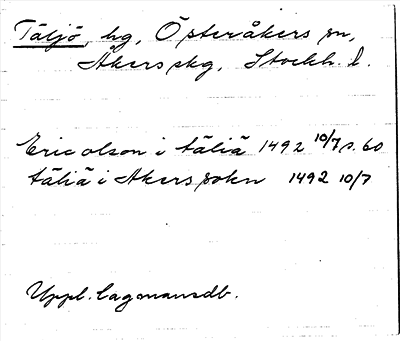 Täljö, hg, Österåkers sn,
Åkers skg, Stockh. l.
Eric olson i täliä 1492 10/7 s. 60
täliä i Akers sokn 1492 10/7
Uppl. lagmansdb.